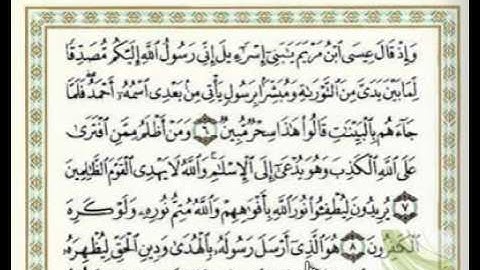 وَإِذْ قَالَ عِيسَى ٱبْنُ مَرْيَمَ يَٰبَنِىٓ إِسْرَٰٓءِيلَ إِنِّى رَسُولُ ٱللَّهِ إِلَيْكُم مُّصَدِّقًا
لِّمَا بَيْنَ يَدَىَّ مِنَ ٱلتَّوْرَىٰةِ وَمُبَشِّرًۢا بِرَسُولٍ يَأْتِى مِنۢ بَعْدِى ٱسْمُهُۥٓ أَحْمَدُ ۖ فَلَمَّا
جَآءَهُم بِٱلْبَيِّنَٰتِ قَالُوا۟ هَٰذَا سِحْرٌ مُّبِينٌ ٦ وَمَنْ أَظْلَمُ مِمَّنِ ٱفْتَرَىٰ
عَلَى ٱللَّهِ ٱلْكَذِبَ وَهُوَ يُدْعَىٰٓ إِلَى ٱلْإِسْلَٰمِ ۚ وَٱللَّهُ لَا يَهْدِى ٱلْقَوْمَ ٱلظَّٰلِمِينَ
٧ يُرِيدُونَ لِيُطْفِـُٔوا۟ نُورَ ٱللَّهِ بِأَفْوَٰهِهِمْ وَٱللَّهُ مُتِمُّ نُورِهِۦ وَلَوْ كَرِهَ
ٱلْكَٰفِرُونَ ٨ هُوَ ٱلَّذِىٓ أَرْسَلَ رَسُولَهُۥ بِٱلْهُدَىٰ وَدِينِ ٱلْحَقِّ لِيُظْهِرَهُۥ